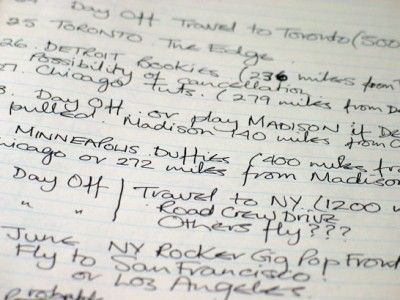 Day Off Travel to Toronto (500
25 TORONTO The Edge
26. DETROIT Bookies (236 miles from T
Possibility of cancellation
27. Chicago Tuts. (279 miles from De
Day Off or play MADISON if De
pulled. Madison 140 miles from C
MINNEAPOLIS Duffies (400 miles fro
icago or 272 miles from Madison
Day Off | Travel to NY. (1200 m
" " | Road Crew Drive
Others fly???
June NY Rocker Gig Pop Front
Fly to San Francisco
or Los Angeles.
probable